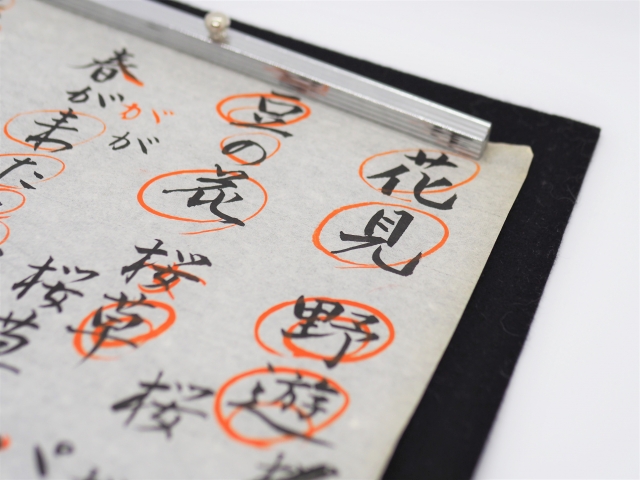 花見
野遊
豆の花
桜草
桜
春が
が
が
桜草